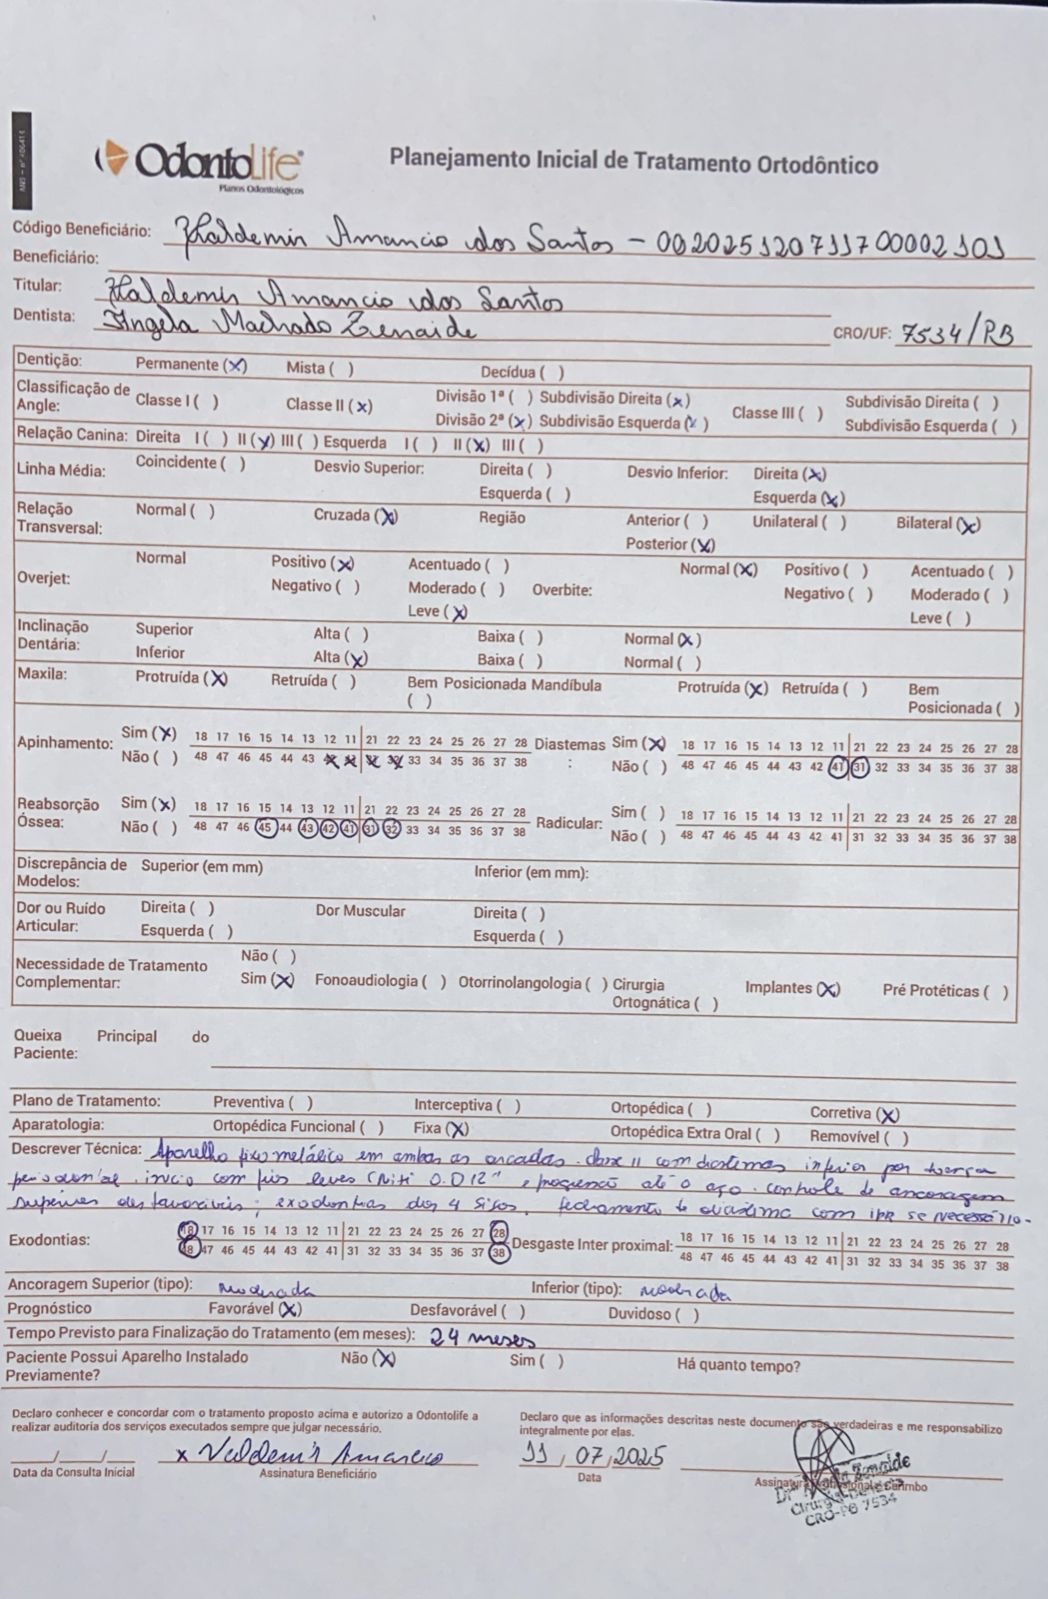 ANS - nº 406414
OdontoLife
Planos Odontológicos
Planejamento Inicial de Tratamento Ortodôntico
Código Beneficiário: Valdemir Amancio dos Santos - 002025120711700002101
Beneficiário:
Titular: Valdemir Amancio dos Santos
Dentista: Angela Machado Zenaide CRO/UF: 7534/PB
Dentição: Permanente (x) Mista ( ) Decídua ( )
Classificação de Angle: Classe I ( ) Classe II (x) Divisão 1ª ( ) Subdivisão Direita (x) Classe III ( ) Subdivisão Direita ( )
Divisão 2ª (x) Subdivisão Esquerda (x) Subdivisão Esquerda ( )
Relação Canina: Direita I ( ) II (x) III ( ) Esquerda I ( ) II (x) III ( )
Linha Média: Coincidente ( ) Desvio Superior: Direita ( ) Desvio Inferior: Direita (x)
Esquerda ( ) Esquerda (x)
Relação Transversal: Normal ( ) Cruzada (x) Região Anterior ( ) Unilateral ( ) Bilateral (x)
Posterior (x)
Overjet: Normal Positivo (x) Acentuado ( ) Overbite: Normal (x) Positivo ( ) Acentuado ( )
Negativo ( ) Moderado ( ) Negativo ( ) Moderado ( )
Leve (x) Leve ( )
Inclinação Dentária: Superior Alta ( ) Baixa ( ) Normal (x)
Inferior Alta (x) Baixa ( ) Normal ( )
Maxila: Protruída (x) Retruída ( ) Bem Posicionada ( ) Mandíbula Protruída (x) Retruída ( ) Bem Posicionada ( )
Apinhamento: Sim (x) 18 17 16 15 14 13 12 11 21 22 23 24 25 26 27 28 Diastemas : Sim (x) 18 17 16 15 14 13 12 11 21 22 23 24 25 26 27 28
Não ( ) 48 47 46 45 44 43 42 41 31 32 33 34 35 36 37 38 Não ( ) 48 47 46 45 44 43 42 41 31 32 33 34 35 36 37 38
Reabsorção Óssea: Sim (x) 18 17 16 15 14 13 12 11 21 22 23 24 25 26 27 28 Radicular: Sim ( ) 18 17 16 15 14 13 12 11 21 22 23 24 25 26 27 28
Não ( ) 48 47 46 45 44 43 42 41 31 32 33 34 35 36 37 38 Não ( ) 48 47 46 45 44 43 42 41 31 32 33 34 35 36 37 38
Discrepância de Modelos: Superior (em mm) Inferior (em mm):
Dor ou Ruído Articular: Direita ( ) Dor Muscular Direita ( )
Esquerda ( ) Esquerda ( )
Necessidade de Tratamento Complementar: Não ( )
Sim (x) Fonoaudiologia ( ) Otorrinolangologia ( ) Cirurgia Ortognática ( ) Implantes (x) Pré Protéticas ( )
Queixa Principal do Paciente:
Plano de Tratamento: Preventiva ( ) Interceptiva ( ) Ortopédica ( ) Corretiva (x)
Aparatologia: Ortopédica Funcional ( ) Fixa (x) Ortopédica Extra Oral ( ) Removível ( )
Descrever Técnica: Aparelho fixo metálico em ambas as arcadas. classe II com diastemas inferior por doença
periodontal. início com fios leves (Niti 0.012" e progressão até o aço. controle de ancoragem
superiores desfavoráveis; exodontias dos 4 sisos, fechamento de diastema com IPR se necessário.
Exodontias: 18 17 16 15 14 13 12 11 21 22 23 24 25 26 27 28 Desgaste Inter proximal: 18 17 16 15 14 13 12 11 21 22 23 24 25 26 27 28
48 47 46 45 44 43 42 41 31 32 33 34 35 36 37 38 48 47 46 45 44 43 42 41 31 32 33 34 35 36 37 38
Ancoragem Superior (tipo): moderada Inferior (tipo): moderada
Prognóstico Favorável (x) Desfavorável ( ) Duvidoso ( )
Tempo Previsto para Finalização do Tratamento (em meses): 24 meses
Paciente Possui Aparelho Instalado Previamente? Não (x) Sim ( ) Há quanto tempo?
Declaro conhecer e concordar com o tratamento proposto acima e autorizo a Odontolife a
realizar auditoria dos serviços executados sempre que julgar necessário.
Declaro que as informações descritas neste documento são verdadeiras e me responsabilizo
integralmente por elas.
__/__/__ x Valdemir Amancio 11/07/2025
Data da Consulta Inicial Assinatura Beneficiário Data Assinatura Profissional e Carimbo
Zenaide
CRO-PB 7534